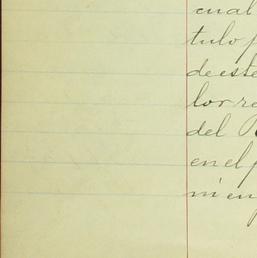 cual
tulo p
de este
lor re
del R
en el p
ni en